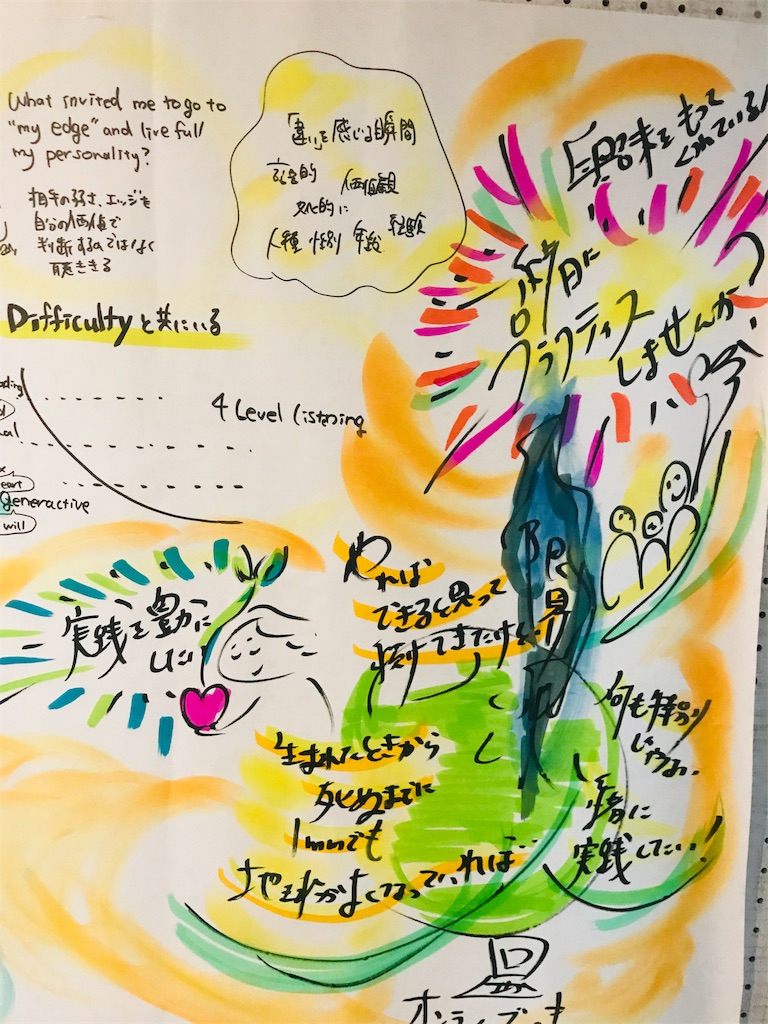 What invited me to go to
"my edge" and live full
my personality?
相手の弱さ、エッジを
自分の価値で
判断するのではなく
聴ききる
「違い」を感じる瞬間
言語的 価値観
文化的に
人種 性別 年齢 経験
興味をもって
くれている人
プラクティス
しませんか?
Difficultyと共にいる
4 Level listening
generactive
will
実践を豊かに
したい
やれば
できると思って
続けてきたけど…
限界
生まれたときから
死ぬまでに
1mmでも
地球がよくなっていれば…
何も特別
じゃない
実践したい!
オンラインでも